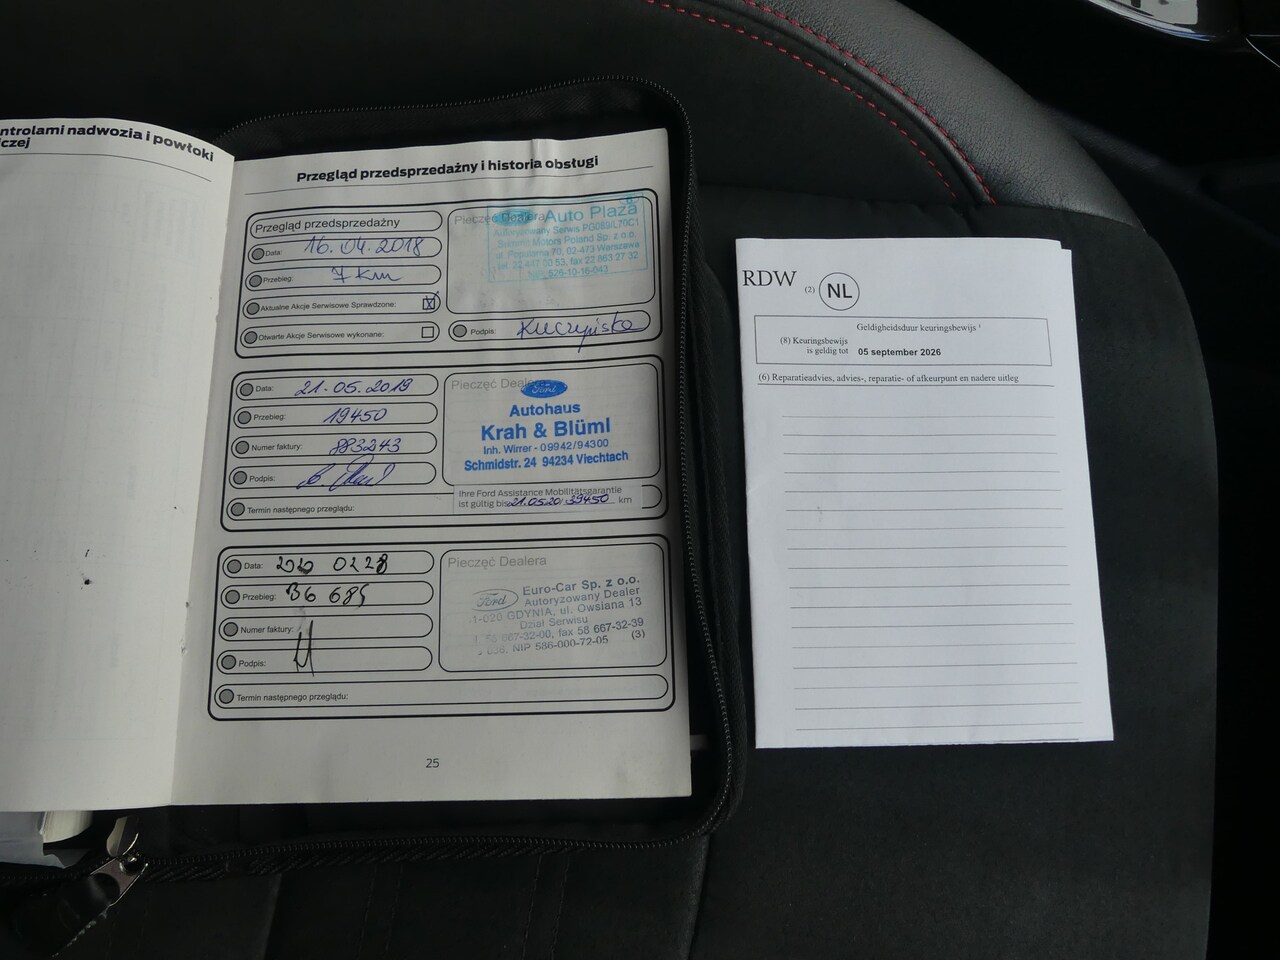 ntrolami nadwozia i powłoki
czej
Przegląd przedsprzedażny i historia obsługi
Przegląd przedsprzedażny
Data: 16.04.2018
Przebieg: 7 km
Aktualne Akcje Serwisowe Sprawdzone:
Otwarte Akcje Serwisowe wykonane:
Pieczęć Dealera
Auto Plaza
Autoryzowany Serwis
Summit Motors Poland Sp. z o.o.
ul. Popularna 70, 02-473 Warszawa
tel. 22 447 00 53, fax 22 863 27 32
526-10-16-043
Podpis: Kuczyńska
Data: 21.05.2019
Przebieg: 19450
Numer faktury: 883243
Podpis:
Termin następnego przeglądu:
Pieczęć Dealera
Ford
Autohaus
Krah & Blüml
Inh. Wirrer - 09942/94300
Schmidstr. 24 94234 Viechtach
Ihre Ford Assistance Mobilitätsgarantie
ist gültig bis 21.05.20 39450 km
Data: 0228
Przebieg: 36 685
Numer faktury:
Podpis:
Termin następnego przeglądu:
Pieczęć Dealera
Ford
Euro-Car Sp. z o.o.
Autoryzowany Dealer
1-020 GDYNIA, ul. Owsiana 13
Dział Serwisu
58 667-32-00, fax 58 667-32-39
NIP 586-000-72-05 (3)
25
RDW (2) NL
Geldigheidsduur keuringsbewijs 1
(8) Keuringsbewijs
is geldig tot 05 september 2026
(6) Reparatieadvies, advies-, reparatie- of afkeurpunt en nadere uitleg